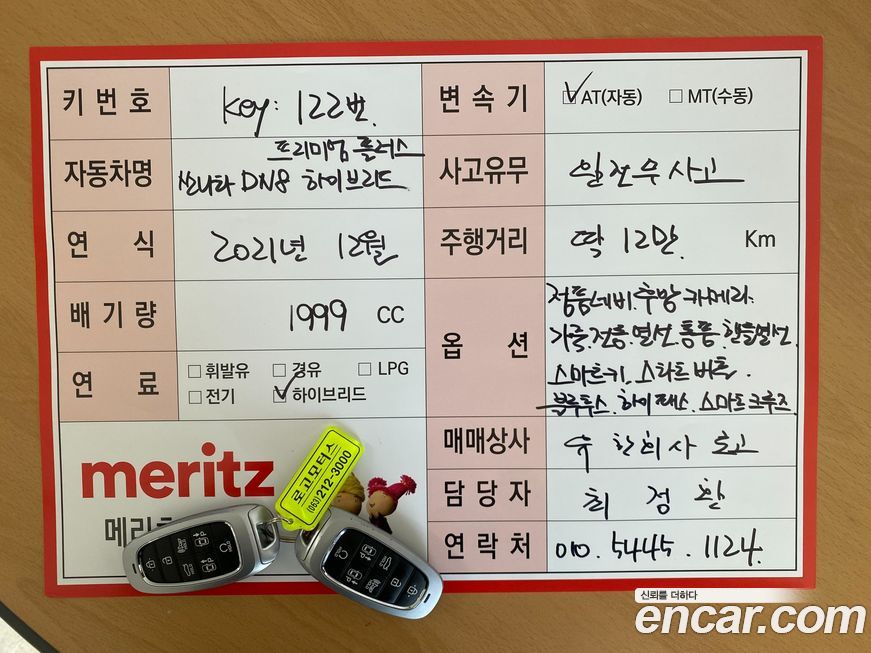 키 번 호 Key: 122번.
변 속 기 ☑AT(자동) ☐MT(수동)
자동차명 프리미엄 플러스
쏘나타 DN8 하이브리드
사고유무 일반무사고
연 식 2021년 12월
주행거리 딱 12만. Km
배 기 량 1999 CC
옵 션 정품네비.후방카메라.
가죽.전동.열선.통풍.핸들열선.
스마트키.스타트버튼.
블루투스.하이패스.스마트크루즈.
연 료 ☐휘발유 ☐경유 ☐LPG
☐전기 ☑하이브리드
매매상사 유한회사 로고
meritz
메리츠
담 당 자 최 정 환
연 락 처 010.5445.1124.
로고모터스
(063)212-3000
신뢰를 더하다
encar.com